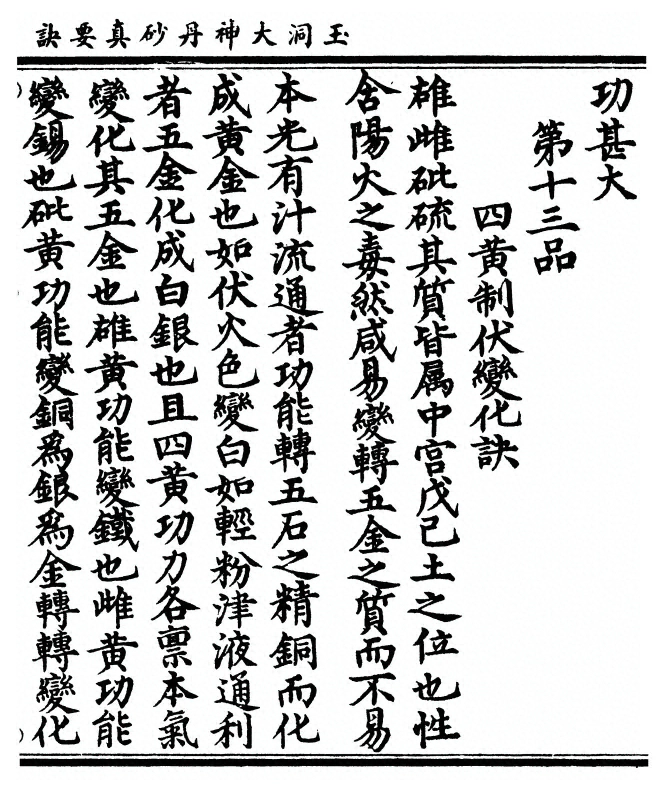 玉洞大神丹砂真要訣
功甚大
第十三品
四黄制伏變化訣
雄雌砒硫其質皆属中宫戊己土之位也性
含陽火之毒然咸易變轉五金之質而不易
本光有汁流通者功能轉五石之精銅而化
成黄金也如伏火色變白如輕粉津液通利
者五金化成白銀也且四黄功力各禀本氣
變化其五金也雄黄功能變鐵也雌黄功能
變錫也砒黄功能變銅爲銀爲金轉轉變化